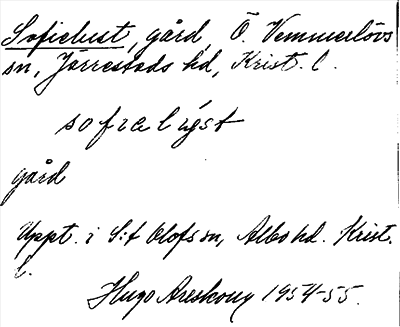 Sofielust, gård, Ö. Vemmerlövs
sn, Järrestads hd, Krist. l.
sofialýst
gård
Uppt. i S:t Olofs sn, Albo hd. Krist.
l.
Hugo Areskoug 1954-55.